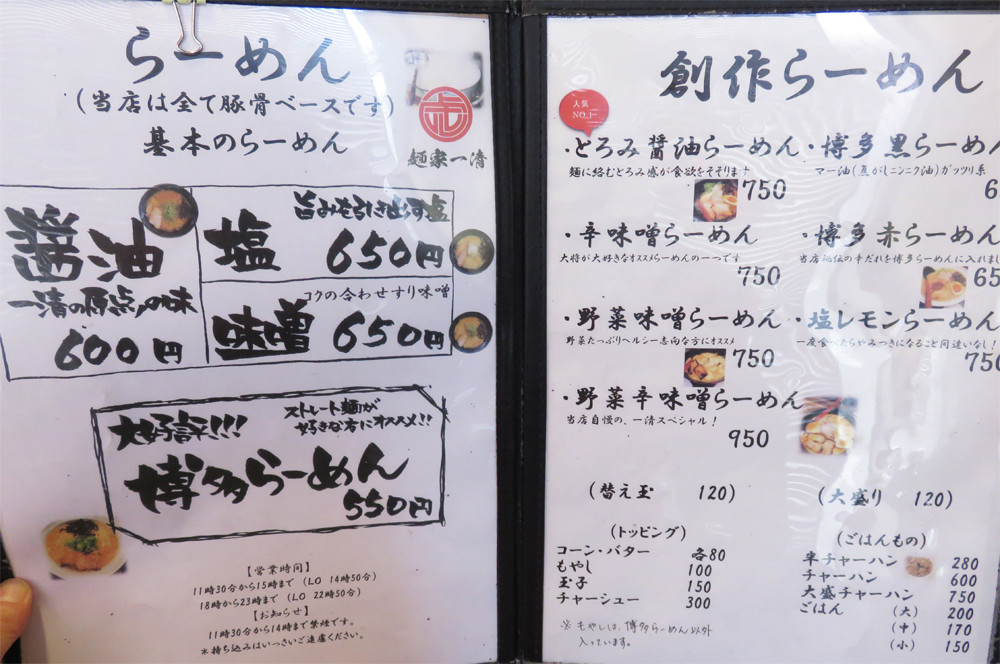 らーめん
(当店は全て豚骨ベースです)
基本のらーめん
麺家一清
醤油
一清の原点の味
600円
旨みを引き出す塩
塩 650円
コクの合わせすり味噌
味噌 650円
大好評!!!
ストレート麺が
好きな方にオススメ!!
博多らーめん
550円
【営業時間】
11時30分から15時まで (LO 14時50分)
18時から23時まで (LO 22時50分)
【お知らせ】
11時30分から14時まで禁煙です。
*持ち込みはいっさいご遠慮ください。
創作らーめん
人気
NO.1
・とろみ醤油らーめん
麺に絡むとろみ感が食欲をそそります
750
・辛味噌らーめん
大将が大好きなオススメらーめんの一つです
750
・野菜味噌らーめん
野菜たっぷりヘルシー志向な方にオススメ
750
・野菜辛味噌らーめん
当店自慢の、一清スペシャル!
950
・博多黒らーめん
マー油(焦がしニンニク油)ガッツリ系
6
・博多 赤らーめん
当店秘伝の辛だれを博多らーめんに入れまし
65
・塩レモンらーめん
一度食べたらやみつきになること間違いなし!
750
(替え玉 120)
(大盛り 120)
(トッピング)
コーン・バター 各80
もやし 100
玉子 150
チャーシュー 300
※もやしは、博多らーめん以外
入っています。
(ごはんもの)
半チャーハン 280
チャーハン 600
大盛チャーハン 750
ごはん (大) 200
(中) 170
(小) 150